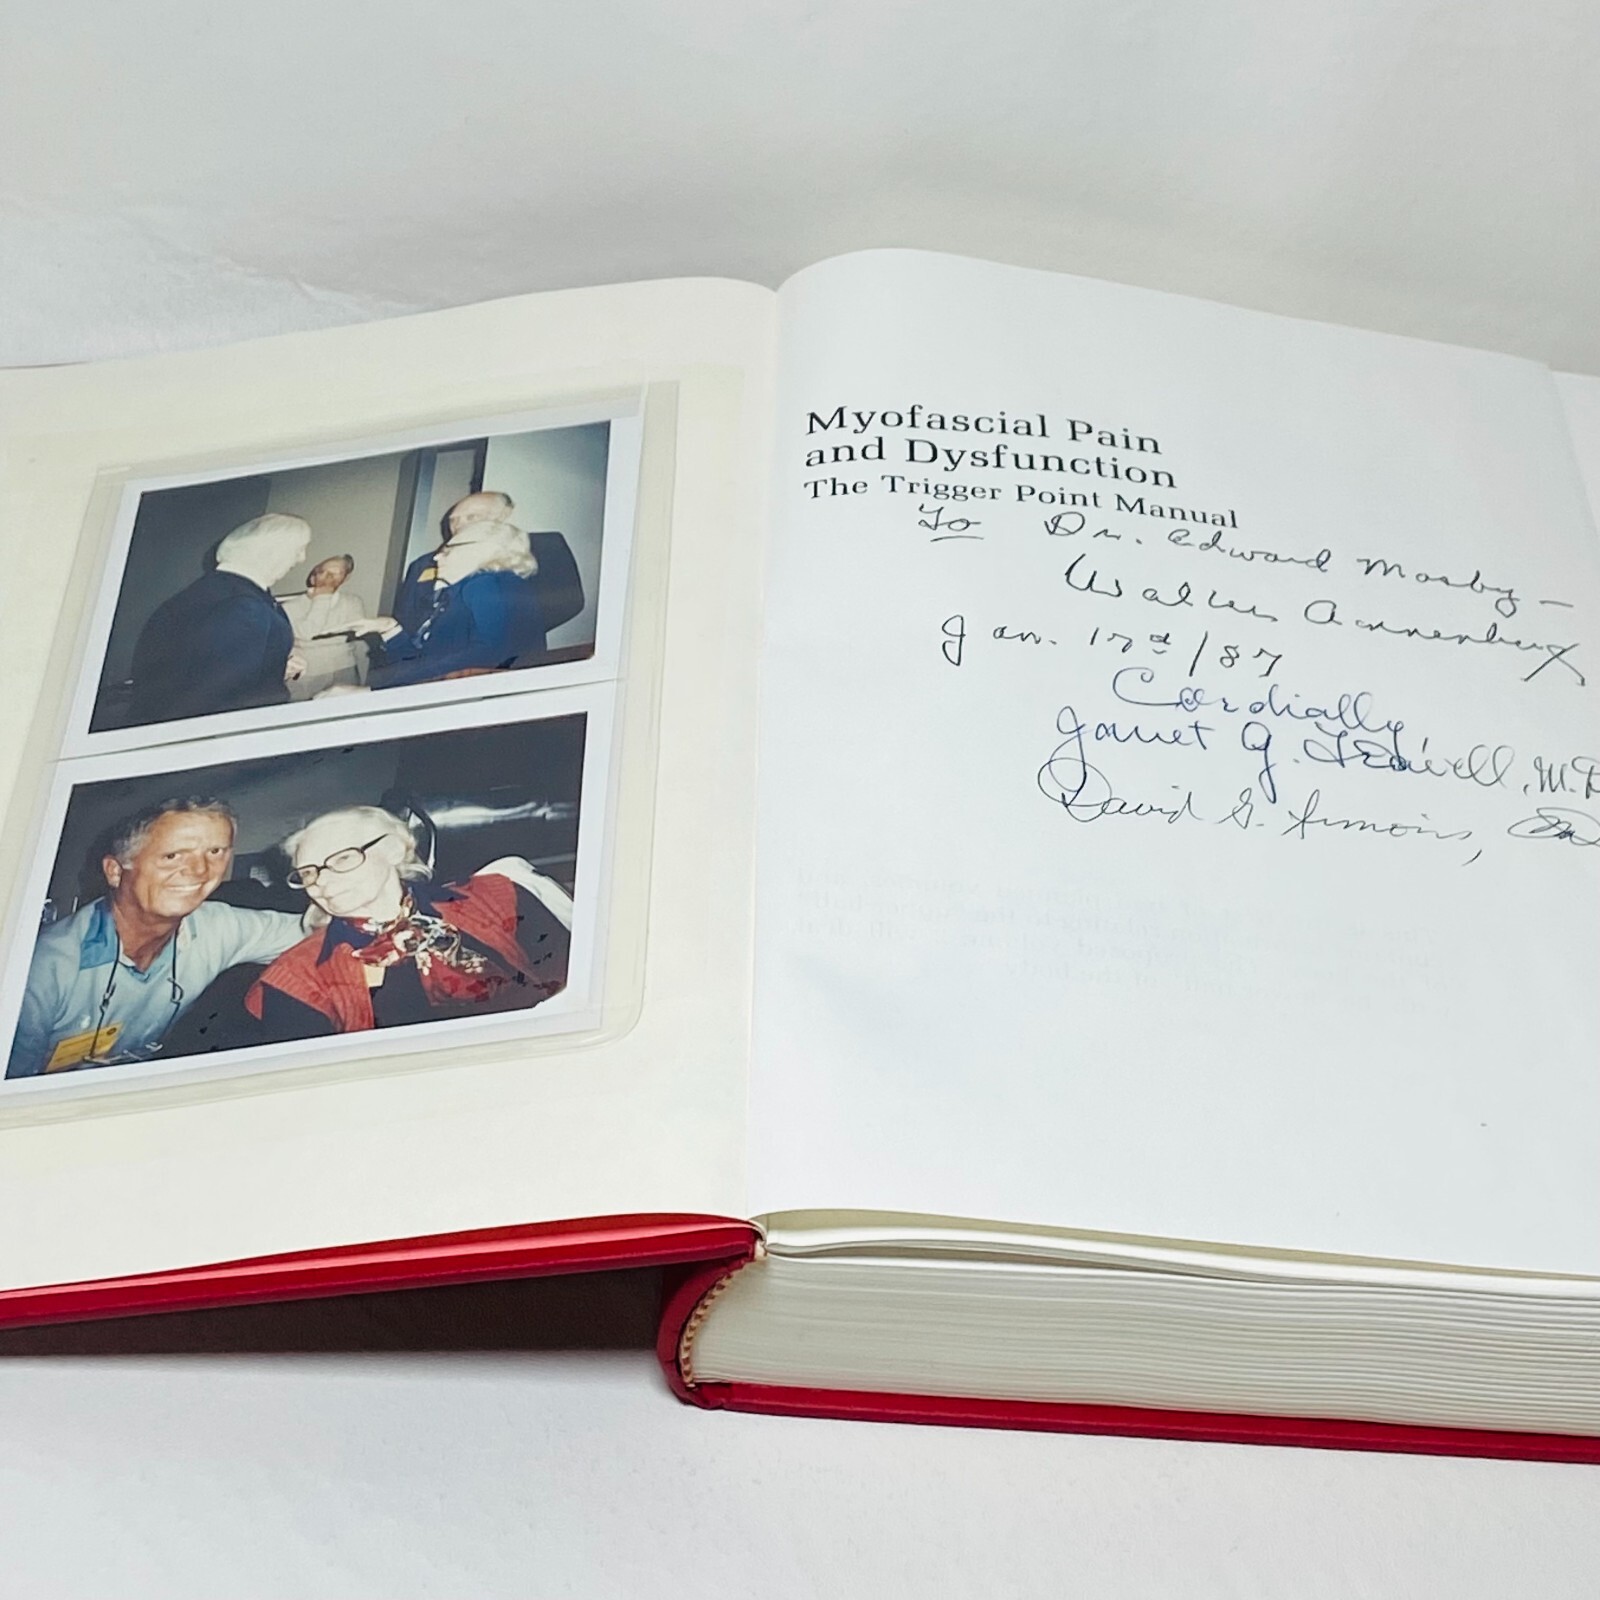 Myofascial Pain
and Dysfunction
The Trigger Point Manual
To Dr. Edward Mosby –
Walter Annenberg
Jan. 17d/87
Cordially,
Janet G. Travell, M.D
David G. Simons,